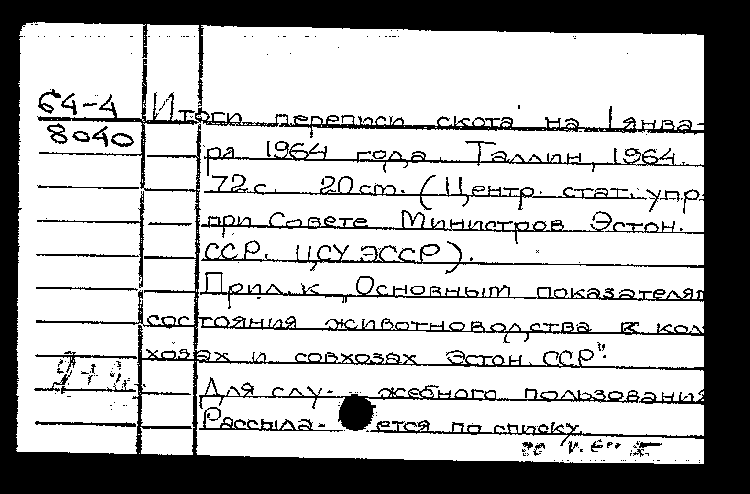 64-4 Итоги переписи скота на 1 янва-
8040
ря 1964 года. Таллин, 1964.
72 с. 20 см. (Центр. стат. упр.
при Совете Министров Эстон.
ССР. ЦСУ ЭССР).
Прил. к „Основным показателям
состояния животноводства в кол-
хозах и совхозах Эстон. ССР".
Для слу- жебного пользования
Рассыла- ется по списку.